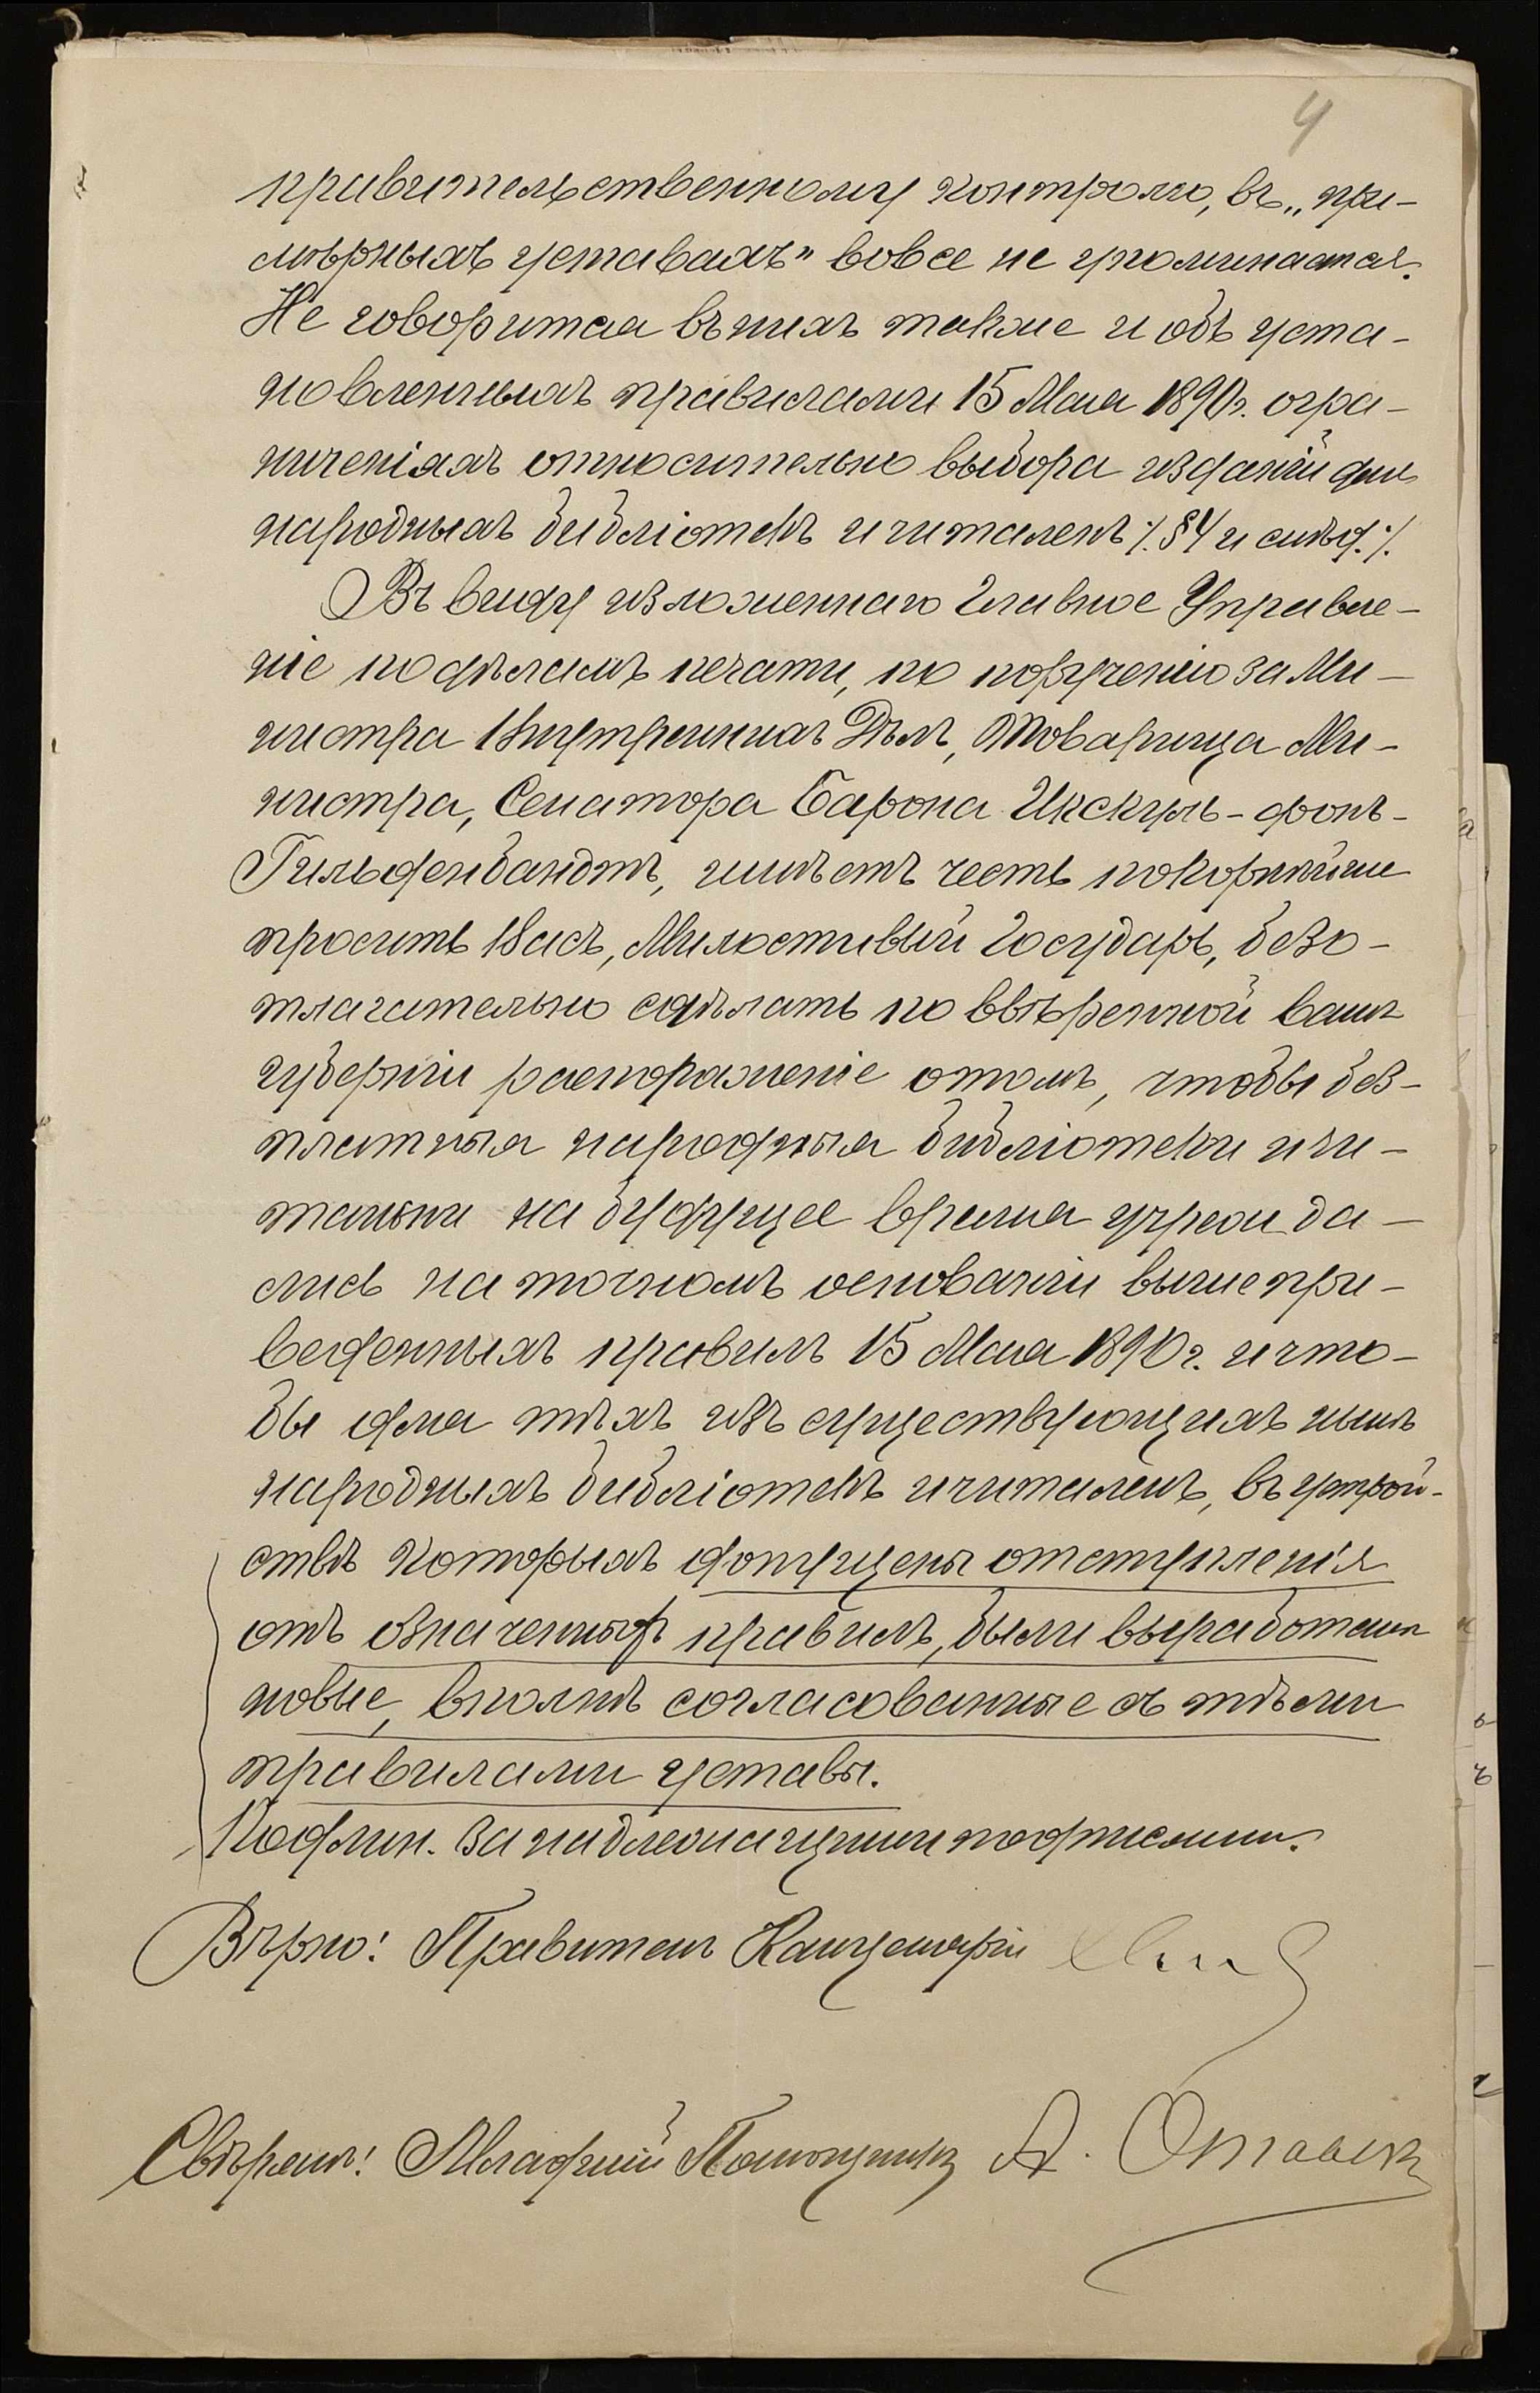 4
правительственному контролю, въ „при-
мѣрныхъ уставахъ" вовсе не упоминается.
Не говорится въ нихъ также и объ уста-
новленныхъ правилами 15 Мая 1890 г. огра-
ниченіяхъ относительно выбора изданій для
народныхъ библіотекъ и читаленъ ٪ §4 и слѣд. ٪
Въ виду изложеннаго Главное Управле-
ніе по дѣламъ печати, по порученію за Ми-
нистра Внутреннихъ Дѣлъ, Товарища Ми-
нистра, Сенатора Барона Икскуль-фонъ-
Гильденбандтъ, имѣетъ честь покорнѣйше
просить Васъ, Милостивый Государь, безо-
тлагательно сдѣлать по ввѣренной вамъ
губерніи распоряженіе о томъ, чтобы без-
платныя народныя библіотеки и чи-
тальни на будущее время учрежда-
лись на точномъ основаніи вышепри-
веденныхъ правилъ 15 Мая 1890 г. и что-
бы для тѣхъ изъ существующихъ нынѣ
народныхъ библіотекъ и читаленъ, въ устрой-
ствѣ которыхъ допущены отступленія
отъ означенныхъ правилъ, были выработаны
новые, вполнѣ согласованные съ тѣми
правилами уставы.
Подлин. за надлежащими подписями.
Вѣрно: Правитель Канцеляріи
Свѣрялъ: Младшій Помощникъ А.